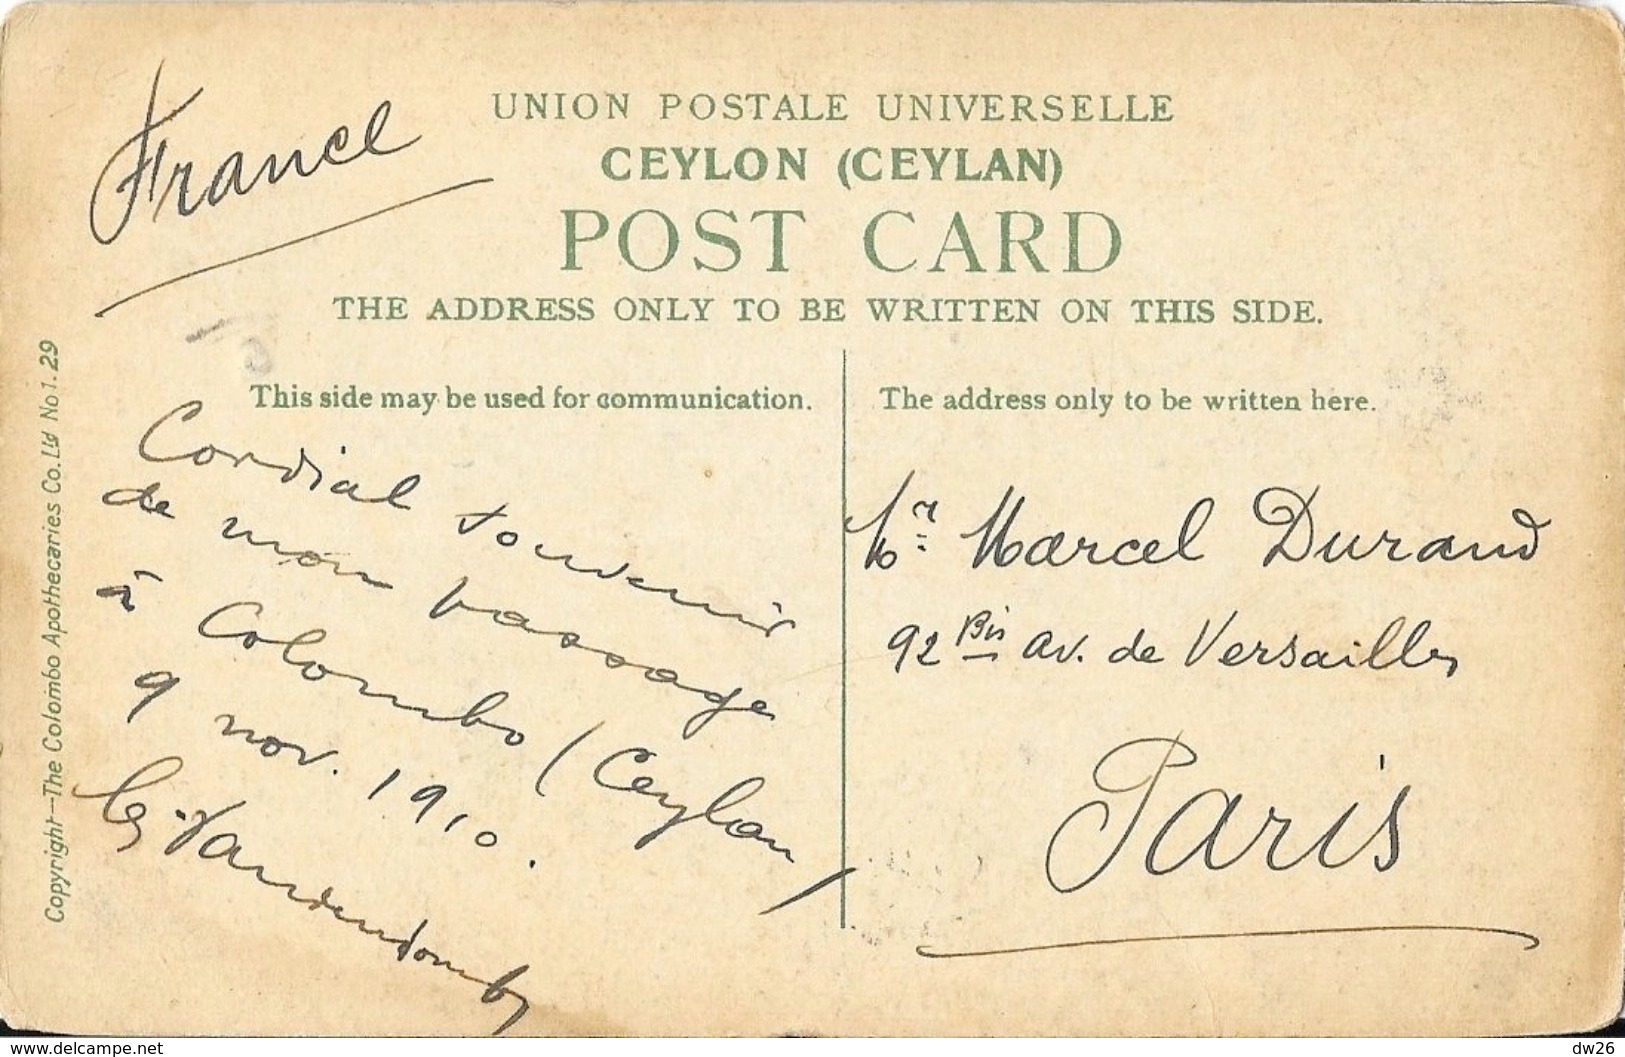 France
UNION POSTALE UNIVERSELLE
CEYLON (CEYLAN)
POST CARD
THE ADDRESS ONLY TO BE WRITTEN ON THIS SIDE.
This side may be used for communication.
Cordial souvenir
de mon passage
à Colombo (Ceylan)
9 nov. 1910.
The address only to be written here.
Mr Marcel Durand
92 Bis av. de Versailles
Paris
Copyright—The Colombo Apothecaries Co. Ltd No 1. 29
www.delcampe.net
dw26